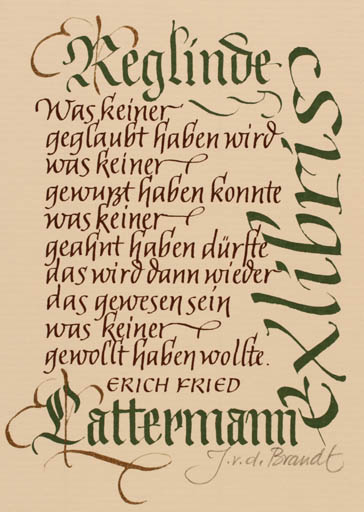 Reglinde
Was keiner
geglaubt haben wird
was keiner
gewußt haben konnte
was keiner
geahnt haben dürfte
das wird dann wieder
das gewesen sein
was keiner
gewollt haben wollte.
ERICH FRIED
Lattermann
exlibris
J. v. d. Brandt